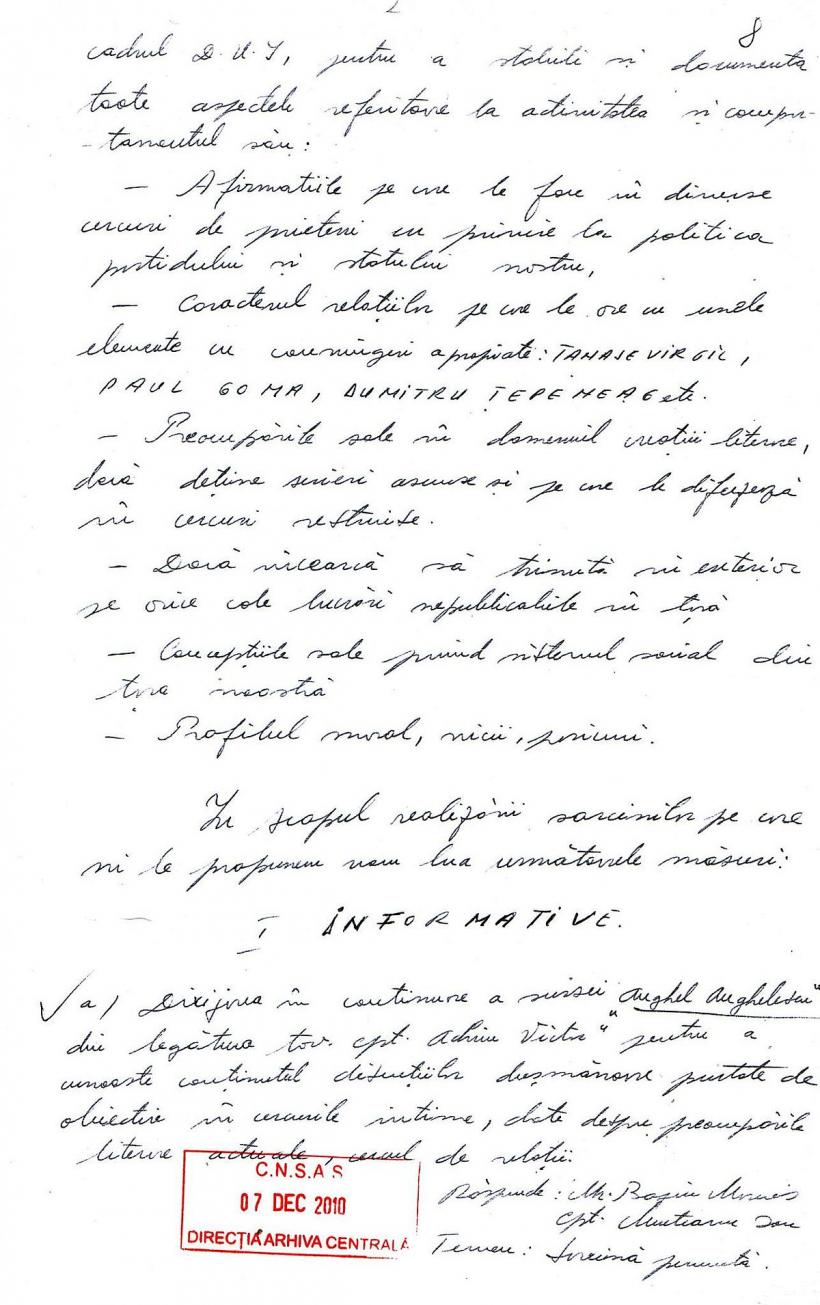 2
8
cadrul D.U.I, pentru a stabili si documenta
toate aspectele referitoare la activitatea si compor-
-tamentul său:
— Afirmatiile pe care le face în diverse
cercuri de prieteni cu privire la politica
partidului si statului nostru,
— Caracterul relațiilor pe care le are cu unele
elemente cu convingeri apropiate: TANASE VIRGIL,
PAUL GOMA, DUMITRU ȚEPENEAG etc.
— Preocupările sale în domeniul creatiei literare,
dacă deține scrieri ascunse și pe care le difuzează
în cercuri restrînse.
— Dacă încearcă să trimită în exterior
pe orice cale lucrări nepublicabile în țară
— Conceptiile sale privind sistemul social din
țara noastră
— Profilul moral, vicii, pasiuni.
In scopul realizării sarcinilor pe care
ni le propunem vom lua următoarele măsuri:
I INFORMATIVE.
a) Dirijarea în continuare a sursei "Anghel Anghelescu"
din legătura tov. cpt. Achim Victor" pentru a
cunoaste continutul discuțiilor dușmănoase purtate de
obiectiv în cercurile intime, date despre preocupările
literare actuale, cercul de relații.
Răspunde: Mr.
cpt. Munteanu Dan
Termen: Sarcină permanentă.
C.N.S.A.S
07 DEC 2010
DIRECȚIA ARHIVA CENTRALĂ